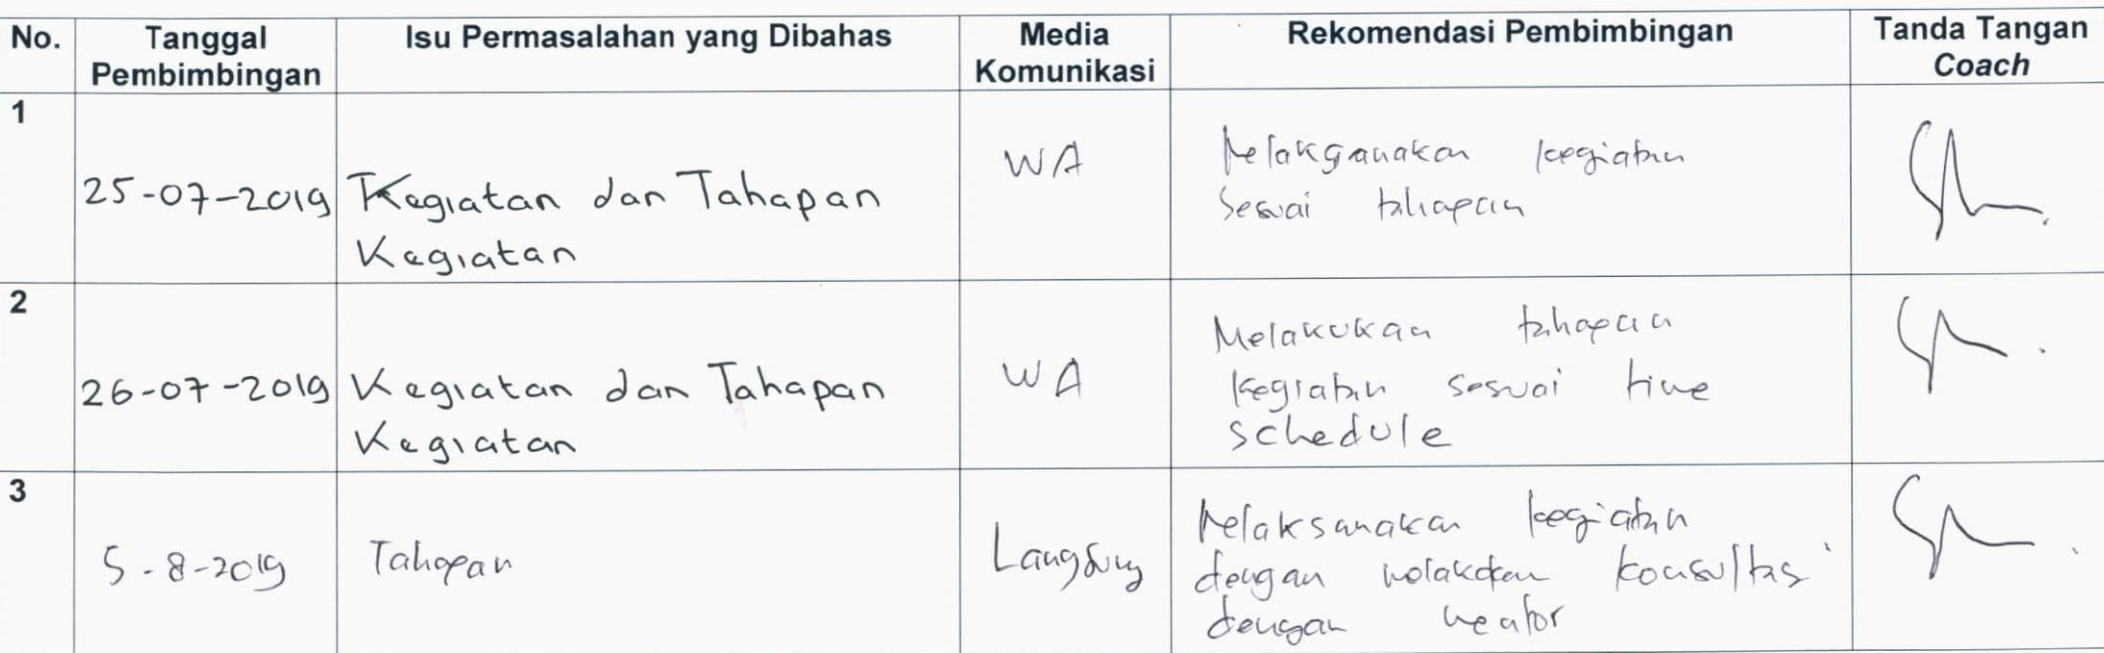 No. Tanggal Pembimbingan Isu Permasalahan yang Dibahas Media Komunikasi Rekomendasi Pembimbingan Tanda Tangan Coach
1
25-07-2019 Kegiatan dan Tahapan Kegiatan
WA
Melaksanakan kegiatan
sesuai tahapan
2
26-07-2019 Kegiatan dan Tahapan Kegiatan
WA
Melakukan tahapan
kegiatan sesuai time
schedule
3
5-8-2019 Tahapan
Langsung
Melaksanakan kegiatan
dengan melakukan konsultasi
dengan mentor